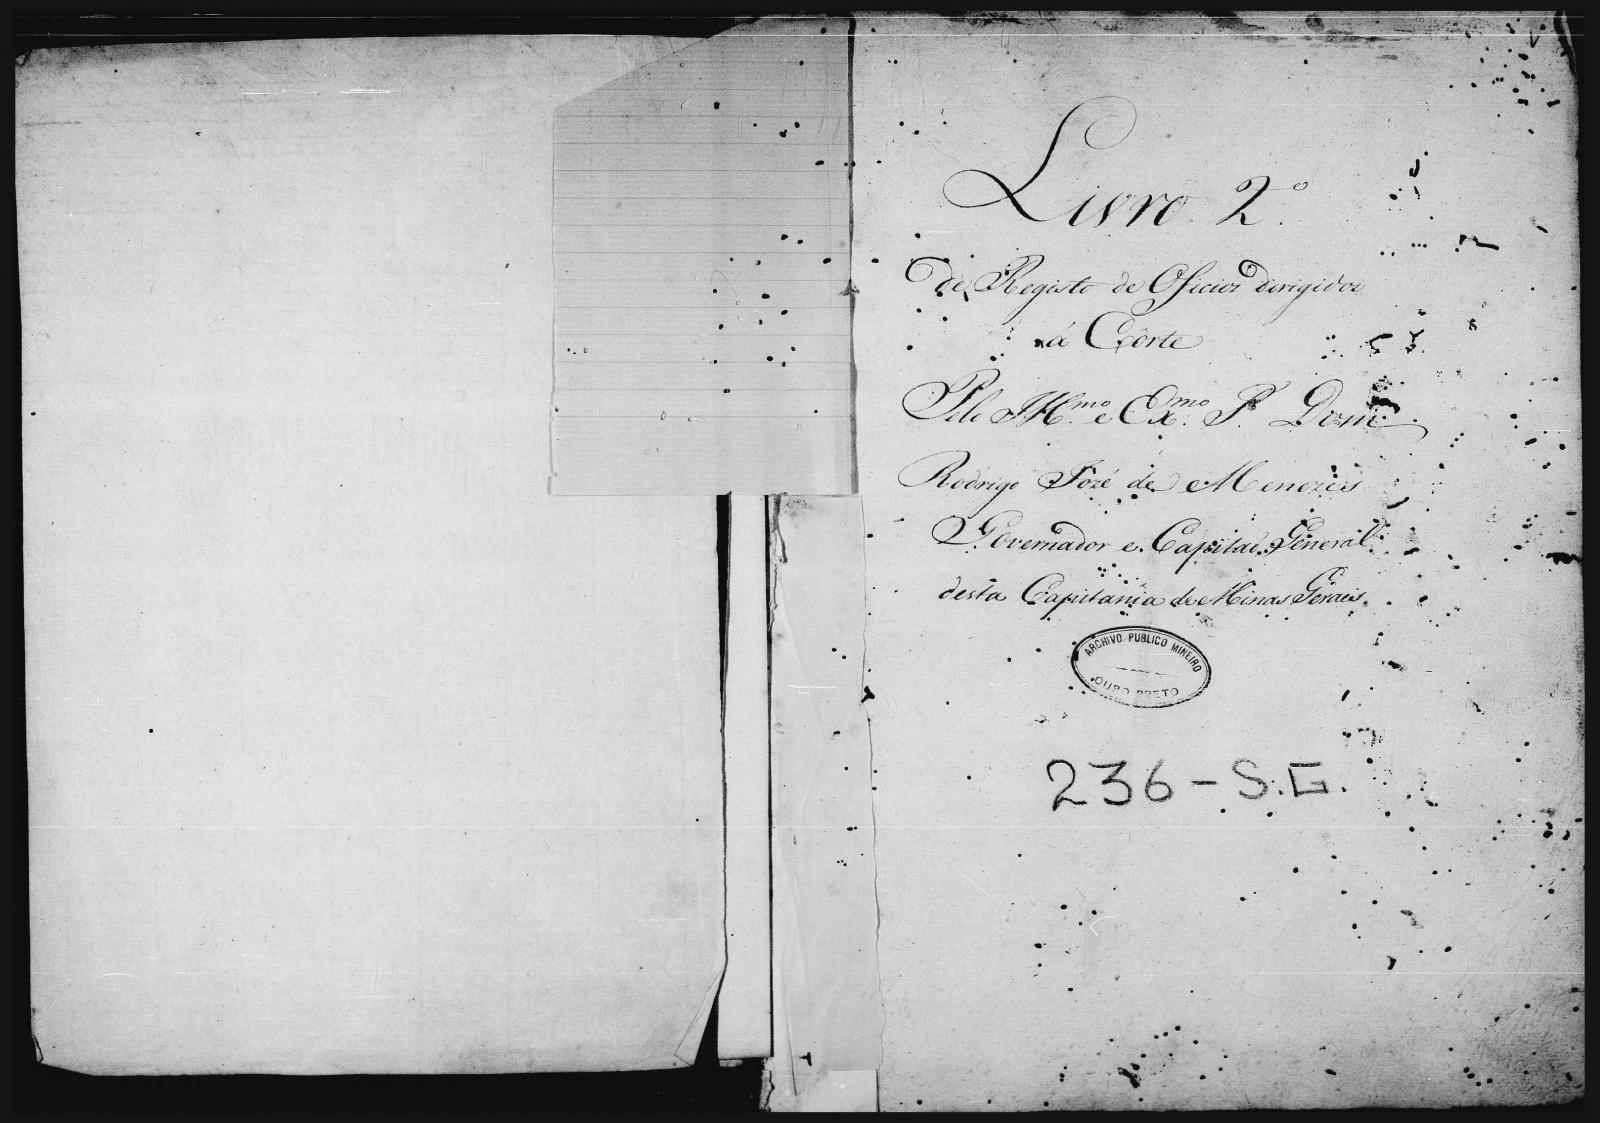 Livro 2.º
de Registo de Oficios dirigidos
á Côrte
Pelo Ill.mo e Ex.mo Sr. Dom
Rodrigo Jozé de Menezes
Governador e Capitão General
desta Capitania de Minas Geraes.
ARCHIVO PUBLICO MINEIRO
OURO PRETO
236-S.G.